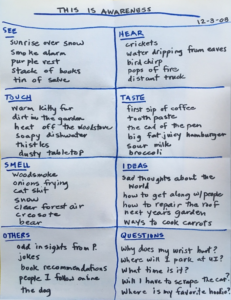 THIS IS AWARENESS
12-3-08
SEE
sunrise over snow
smoke alarm
purple rest
stack of books
tin of salve
HEAR
crickets
water dripping from eaves
bird chirp
pops of fire
distant truck
TOUCH
warm kitty fur
dirt in the garden
heat off the woodstove
soapy dishwater
thistles
dusty tabletop
TASTE
first sip of coffee
tooth paste
the end of the pen
big fat juicy hamburger
sour milk
broccoli
SMELL
woodsmoke
onions frying
cat shit
snow
clear forest air
creosote
bear
IDEAS
sad thoughts about the
World
how to get along w/people
how to repair the roof
next years garden
ways to cook carrots
OTHERS
odd insights from P.
jokes
book recommendations
people I follow online
the dog
QUESTIONS
Why does my wrist hurt?
Where will I park at
What time is it?
Will I have to scrape the car?
Where is my favorite